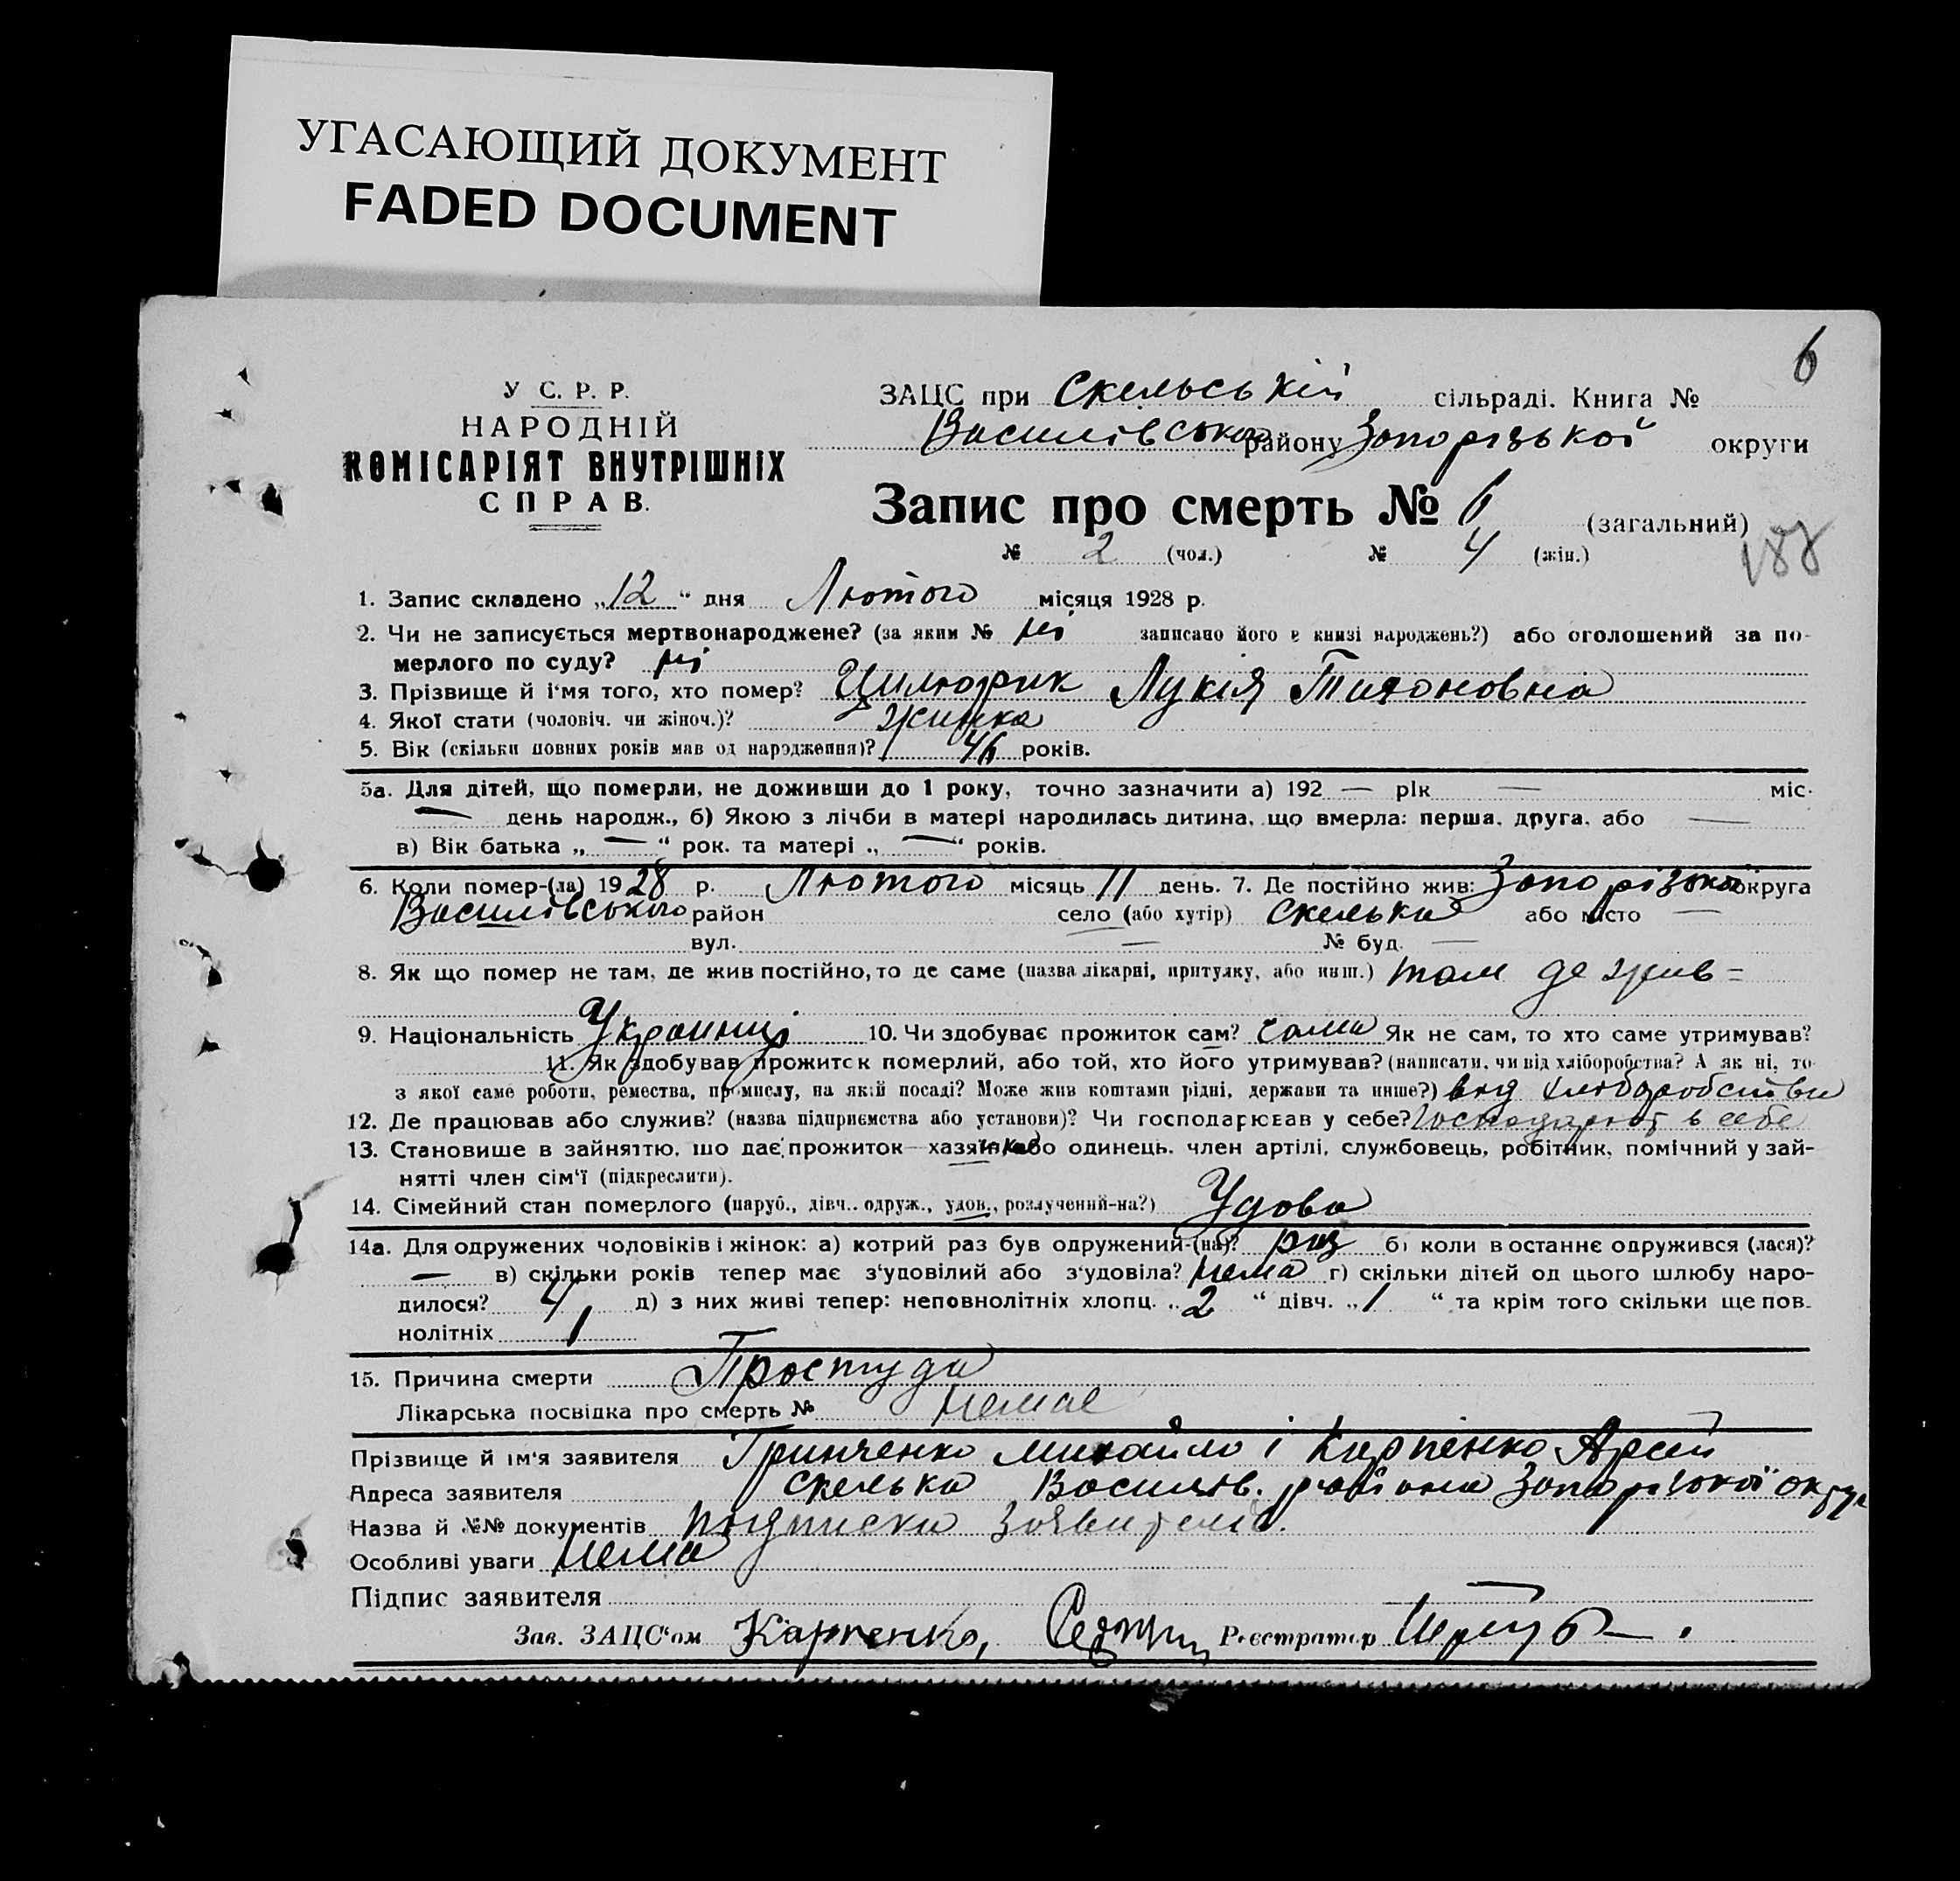 УГАСАЮЩИЙ ДОКУМЕНТ
FADED DOCUMENT
6
У С. Р. Р.
НАРОДНІЙ
КОМІСАРІЯТ ВНУТРІШНІХ
СПРАВ.
ЗАЦС при Скельській сільраді. Книга №
Василівського району Запорізької округи
Запис про смерть № 6 (загальний)
№ 2 (чол.) № 4 (жін.)
188
1. Запис складено „12“ дня Лютого місяця 1928 р.
2. Чи не записується мертвонароджене? (за яким № ні записано його в книзі народжень?) або оголошений за по-
мерлого по суду? ні
3. Прізвище й ім'я того, хто помер? Цилюрик Лукія Тихоновна
4. Якої стати (чоловіч. чи жіноч.)? жинка
5. Вік (скільки повних років мав од народження)? 46 років.
5а. Для дітей, що померли, не доживши до 1 року, точно зазначити а) 192 — рік — міс.
— день народж., б) Якою з лічби в матері народилась дитина, що вмерла: перша, друга, або —
в) Вік батька „ — “ рок. та матері „ — “ років.
6. Коли помер-(ла) 1928 р. Лютого місяць 11 день. 7. Де постійно жив: Запорізької округа
Василівського район село (або хутір) Скелька або місто —
вул. — № буд. —
8. Як що помер не там, де жив постійно, то де саме (назва лікарні, притулку, або инш.) там де жив =
9. Національність Украинці 10. Чи здобуває прожиток сам? сама Як не сам, то хто саме утримував?
11. Як здобував прожиток померлий, або той, хто його утримував? (написати, чи від хліборобства? А як ні, то
з якої саме роботи, ремества, промислу, на якій посаді? Може жив коштами рідні, держави та инше?) від хлиборобства
12. Де працював або служив? (назва підприємства або установи)? Чи господарював у себе? в себе
13. Становише в зайняттю, що дає прожиток—хазяйка або одинець. член артілі, службовець, робітник, помічний у зай-
нятті член сім'ї (підкреслити).
14. Сімейний стан померлого (паруб., дівч., одруж., удов., розлучений-на?) Удова
14а. Для одружених чоловіків і жінок: а) котрий раз був одружений-(на)? раз б) коли в останнє одружився (лася)?
— в) скільки років тепер має з'удовілий або з'удовіла? нема г) скільки дітей од цього шлюбу наро-
дилося? 4 д) з них живі тепер: неповнолітніх хлопц. „ 2 “ дівч. „ 1 “ та крім того скільки ще пов-
нолітніх 1
15. Причина смерти Простуда
Лікарська посвідка про смерть № немає
Прізвище й ім'я заявителя Гринченко Михайло і Карпенко Арсей
Адреса заявителя Скелька Василів. района Запорізької округ
Назва й №№ документів подписка заявителів.
Особливі уваги нема
Підпис заявителя
Зав. ЗАЦС'ом Карпенко, Реєстратор